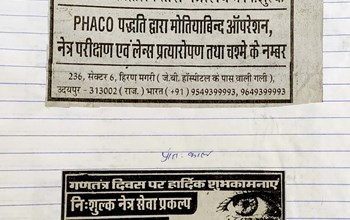 PHACO पद्धति द्वारा मोतियाबिन्द ऑपरेशन,
नेत्र परीक्षण एवं लेन्स प्रत्यारोपण तथा चश्मे के नम्बर
236, सेक्टर 6, हिरण मगरी ( जे.बी. हॉस्पीटल के पास वाली गली ),
उदयपुर - 313002 ( राज. ) भारत ( +91 ) 9549399993, 9649399993
प्रातः काल
गणतंत्र दिवस पर हार्दिक शुभकामनाएं
निःशुल्क नेत्र सेवा प्रकल्प